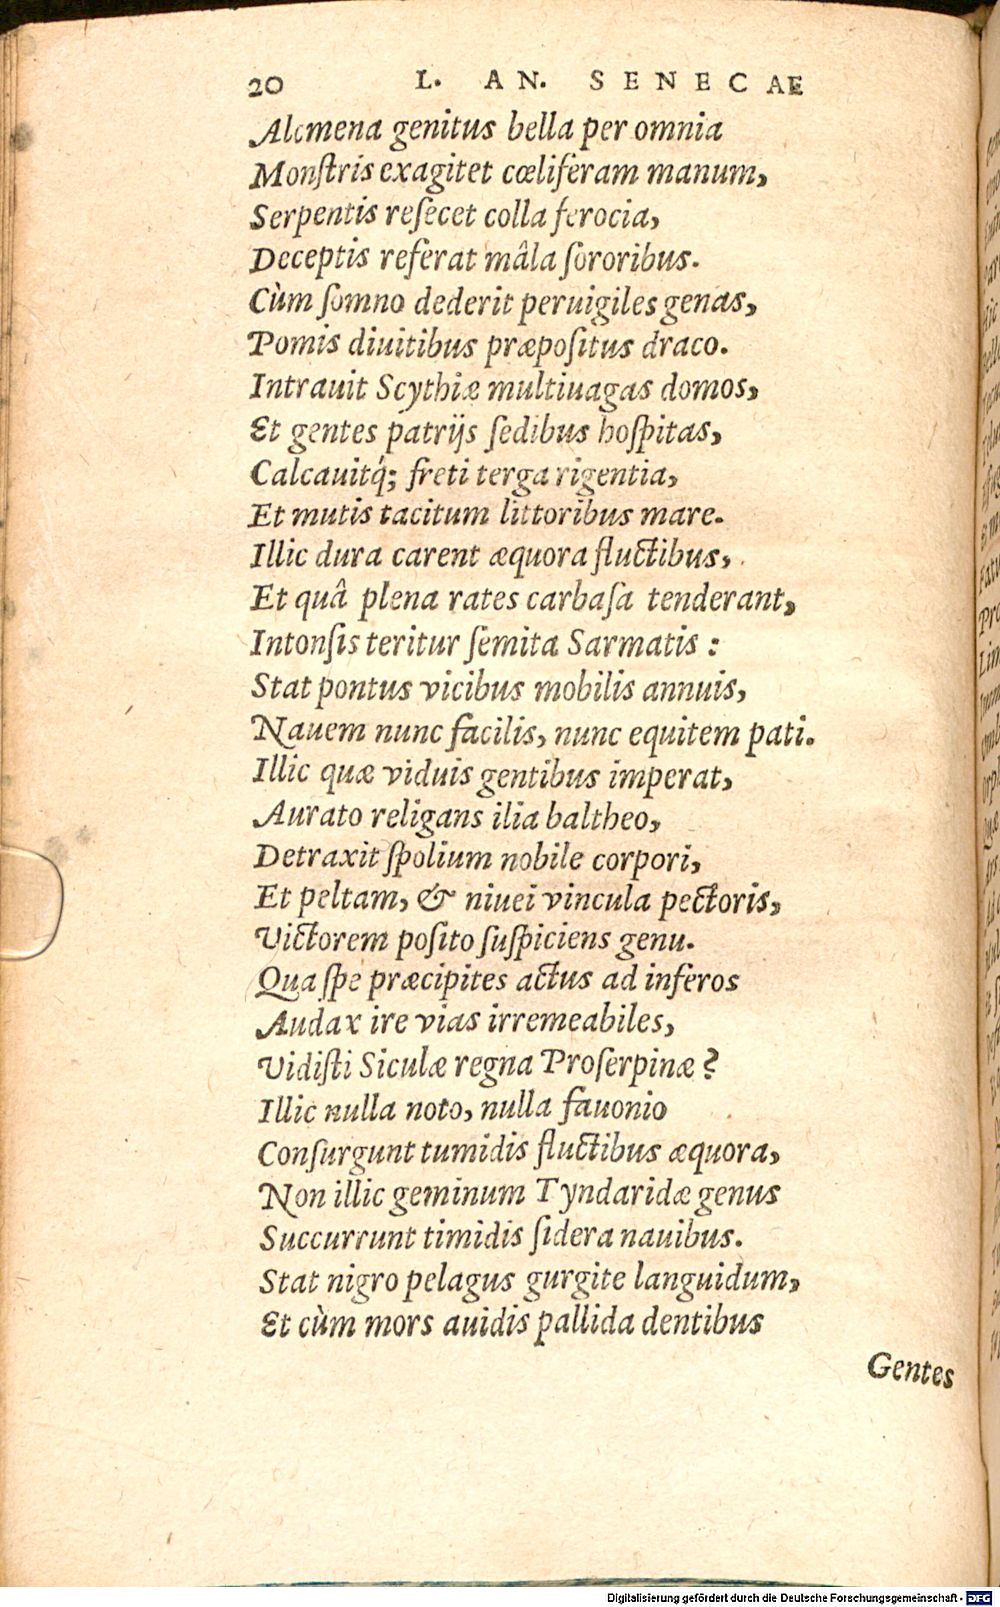 20 L. AN. SENECAE
Alcmena genitus bella per omnia
Monſtris exagitet cœliferam manum,
Serpentis reſecet colla ferocia,
Deceptis referat mâla ſororibus.
Cùm ſomno dederit peruigiles genas,
Pomis diuitibus præpoſitus draco.
Intrauit Scythiæ multiuagas domos,
Et gentes patrijs ſedibus hoſpitas,
Calcauitq́; freti terga rigentia,
Et mutis tacitum littoribus mare.
Illic dura carent æquora fluctibus,
Et quâ plena rates carbaſa tenderant,
Intonſis teritur ſemita Sarmatis :
Stat pontus vicibus mobilis annuis,
Nauem nunc facilis, nunc equitem pati.
Illic quæ viduis gentibus imperat,
Aurato religans ilia baltheo,
Detraxit ſpolium nobile corpori,
Et peltam, & niuei vincula pectoris,
Victorem poſito ſuſpiciens genu.
Qua ſpe præcipites actus ad inferos
Audax ire vias irremeabiles,
Vidiſti Siculæ regna Proſerpinæ ?
Illic nulla noto, nulla fauonio
Conſurgunt tumidis fluctibus æquora,
Non illic geminum Tyndaridæ genus
Succurrunt timidis ſidera nauibus.
Stat nigro pelagus gurgite languidum,
Et cùm mors auidis pallida dentibus
Gentes
Digitalisierung gefördert durch die Deutsche Forschungsgemeinschaft - DFG